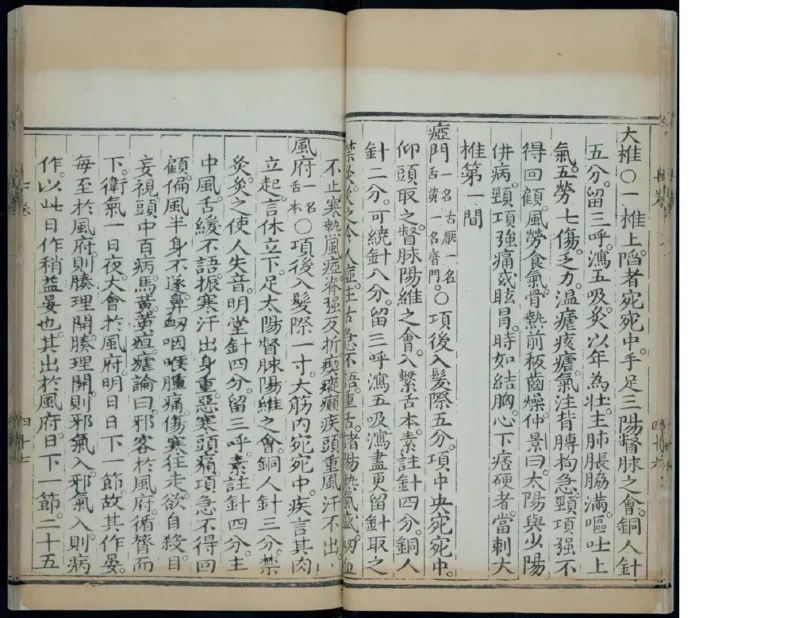 大椎〇一椎上䧟者宛宛中手足三陽督脉之會銅人針
五分留三呼瀉五吸灸以年為壯主肺脹脇滿嘔吐上
氣五勞七傷乏力温瘧痎瘧氣注背膊拘急頸項強不
得回顧風勞食氣骨熱前板齒燥仲景曰太陽與少陽
併病頸項強痛或眩冒時如結胸心下痞硬者當刺大
椎第一間
瘂門一名舌厭一名舌橫一名瘖門〇項後入髮際五分項中央宛宛中
仰頭取之督脉陽維之會入繫舌本素註針四分銅人
針二分可繞針八分留三呼瀉五吸瀉盡更留針取之
禁灸灸之令人瘂主舌急不語重舌諸陽熱氣盛衂血
不止寒熱風瘂脊强反折瘈瘲癲疾頭重風汗不出
風府一名舌本〇項後入髮際一寸大筋内宛宛中疾言其肉
立起言休立下足太陽督脉陽維之會銅人針三分禁
灸灸之使人失音明堂針四分留三呼素註針四分主
中風舌緩不語振寒汗出身重惡寒頭痛項急不得回
顧偏風半身不遂鼻衂咽喉腫痛傷寒狂走欲自殺目
妄視頭中百病馬黃黃疸瘧論曰邪客於風府循膂而
下衛氣一日夜大會於風府明日日下一節故其作晏
每至於風府則腠理開腠理開則邪氣入邪氣入則病
作以此日作稍益晏也其出於風府日下一節二十五